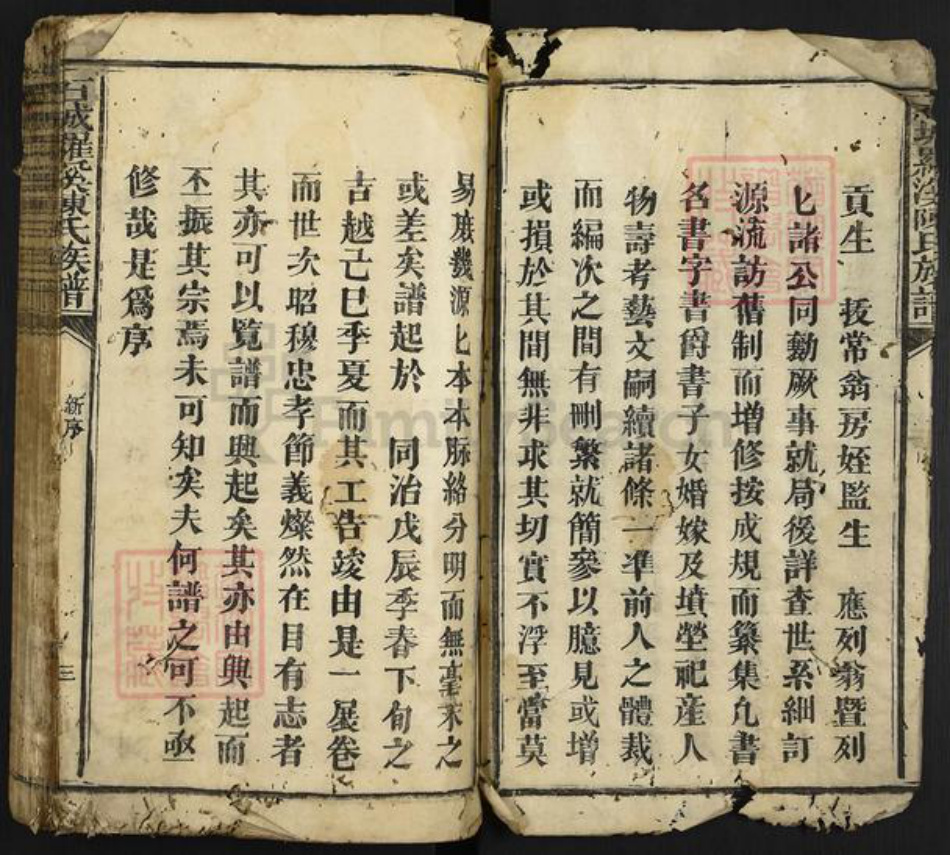 貢生　援常翁房姪監生　應列翁暨列
匕諸公同勷厥事就局後詳查世系細訂
源流訪舊制而增修按成規而纂集凢書
名書字書爵書子女婚嫁及墳塋祀產人
物壽考藝文嗣續諸條一準前人之體裁
而編次之間有刪繁就簡參以臆見或增
或損於其間無非求其切實不浮至當莫
易庶幾源匕本本脉絡分明而無毫末之
或差矣譜起於　同治戊辰季春下旬之
吉越己巳季夏而其工告竣由是一展卷
而世次昭穆忠孝節義燦然在目有志者
其亦可以覽譜而興起矣其亦由興起而
丕振其宗焉未可知矣夫何譜之可不亟
修哉是爲序
石城羅溪陳氏族譜
新序
三
羅溪陳氏族譜
FamilySearch